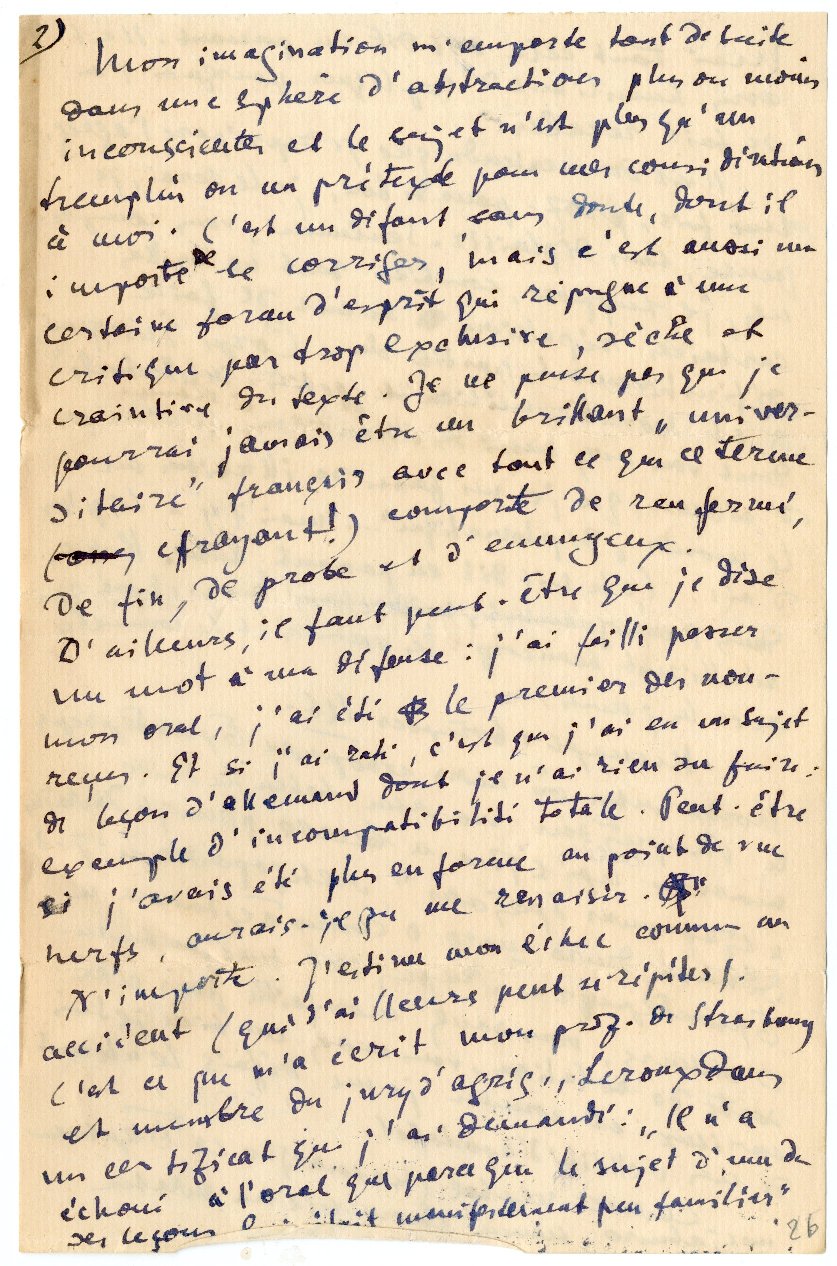 2)
Mon imagination m'emporte tout de suite
dans une sphère d'abstractions plus ou moins
inconscientes et le sujet n'est plus qu'un
tremplin ou un prétexte pour mes considérations
à moi. C'est un défaut sans doute, dont il
importe de se corriger, mais c'est aussi une
certaine forme d'esprit qui répugne à une
critique par trop exclusive, sèche et
craintive du texte. Je ne pense pas que je
pourrai jamais être un brillant „univer-
sitaire" français avec tout ce que ce terme
(effrayant!) comporte de renfermé,
de fin, de probe et d'ennuyeux.
D'ailleurs, il faut peut-être que je dise
un mot à ma défense : j'ai failli passer
mon oral, j'ai été le premier des non-
reçus. Et si j'ai raté, c'est que j'ai eu un sujet
de leçon d'allemand dont je n'ai rien su faire :
exemple d'incompatibilité totale. Peut-être
si j'avais été plus en forme au point de vue
nerfs, aurais-je pu me ressaisir.
N'importe. J'estime mon échec comme un
accident (qui d'ailleurs peut se répéter).
C'est ce que m'a écrit mon prof. de Strasbourg
et membre du jury d'agrég., Leroux dans
un certificat que j'ai demandé : „Il n'a
échoué à l'oral que parce que le sujet d'une de
ses leçons lui était manifestement peu familier"
26